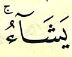 يَشَآءُۚ